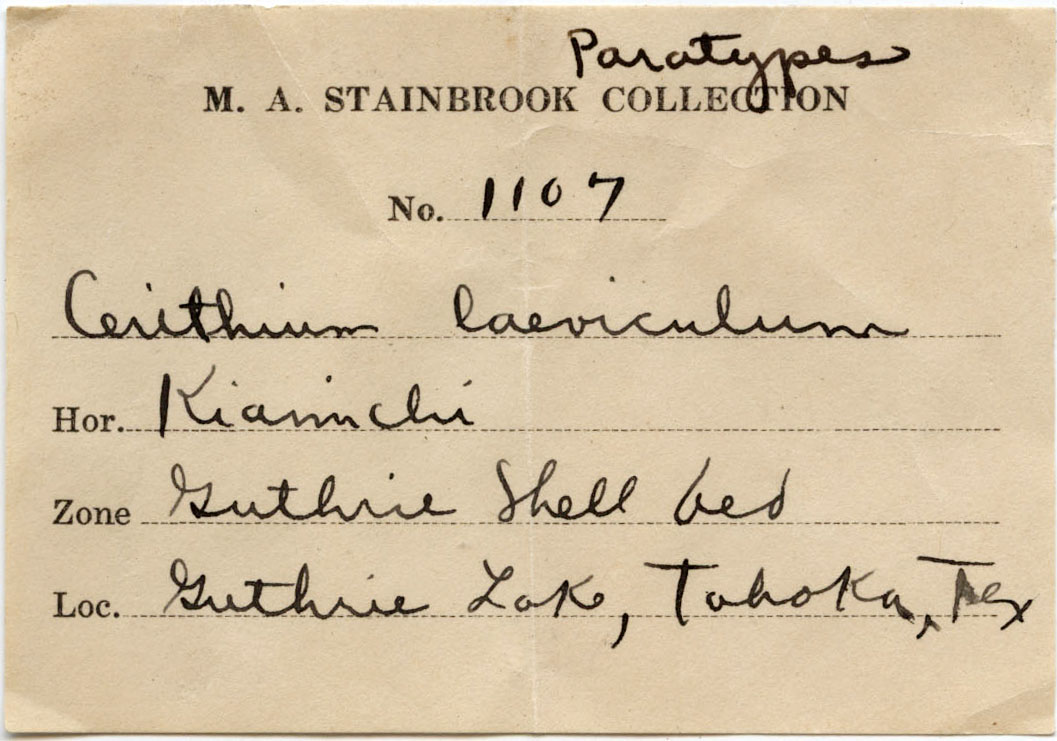 Paratypes
M. A. STAINBROOK COLLECTION
No. 1107
Cerithium laeviculum
Hor. Kiamichi
Zone Guthrie Shell bed
Loc. Guthrie Lake, Tahoka, Tex